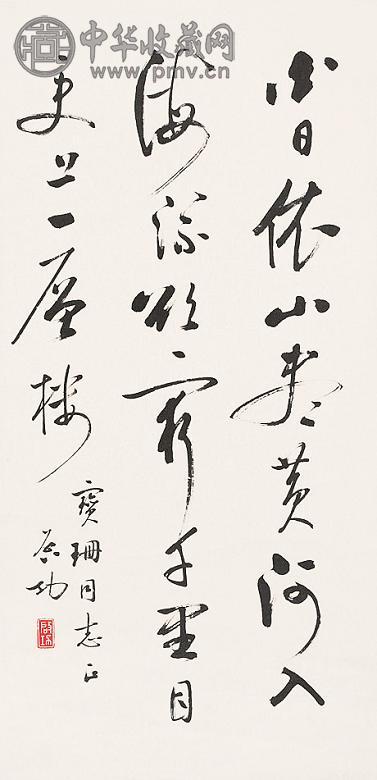 白日依山尽黄河入
海流欲穷千里目
更上一层楼
寶珊同志正
启功
启功
中华收藏网
www.pmv.cn